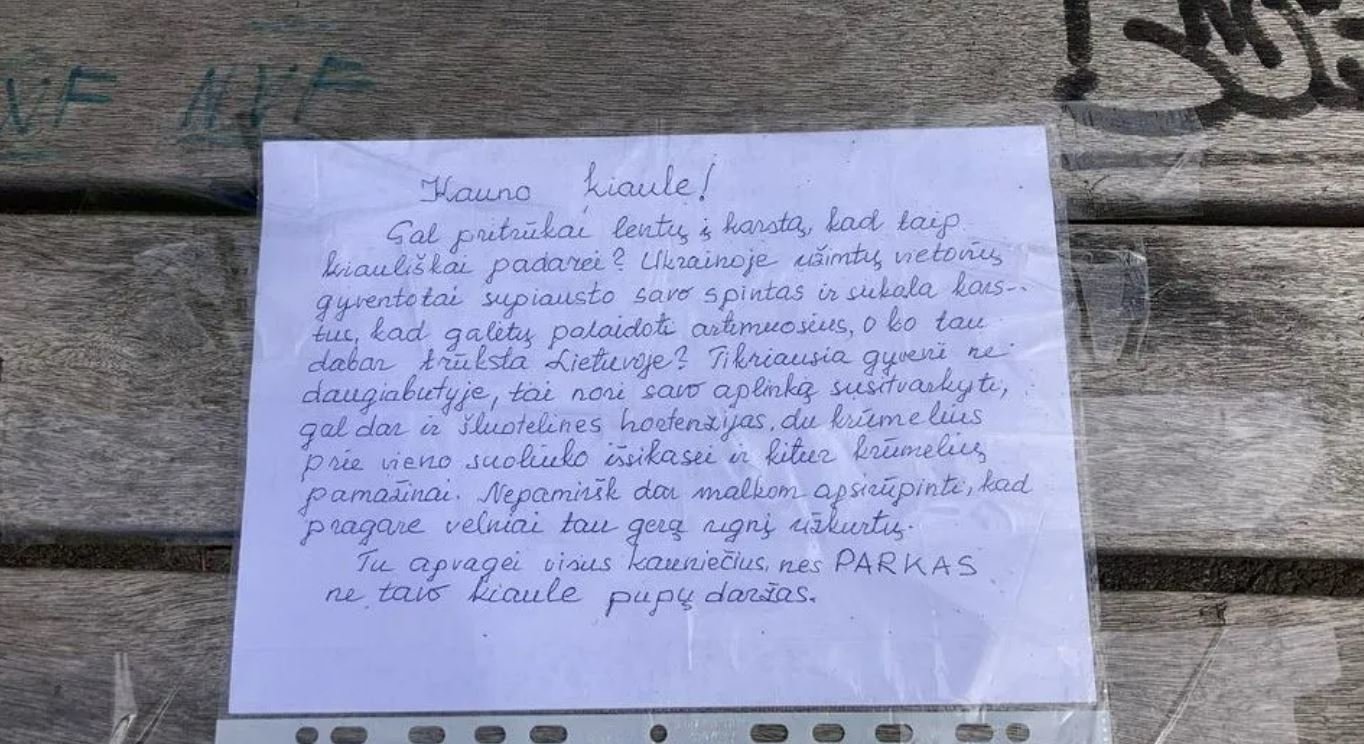 NVF NVF
Kauno kiaule!
Gal pritrūkai lentų į karstą, kad taip
kiauliškai padarei? Ukrainoje užimtų vietovių
gyventotai supiausto savo spintas ir sukala kars-
tus, kad galėtų palaidoti artimuosius, o ko tau
dabar trūksta Lietuvoje? Tikriausia gyveni ne
daugiabutyje, tai nori savo aplinką susitvarkyti,
gal dar ir šluotelines hortenzijas, du krūmelius
prie vieno suoliuko išsikasei ir kitur krūmelių
pamažinai. Nepamiršk dar malkom apsirūpinti, kad
pragare velniai tau gerą ugnį užkurtų.
Tu apvagei visus kauniečius, nes PARKAS
ne tavo kiaule pupų daržas.